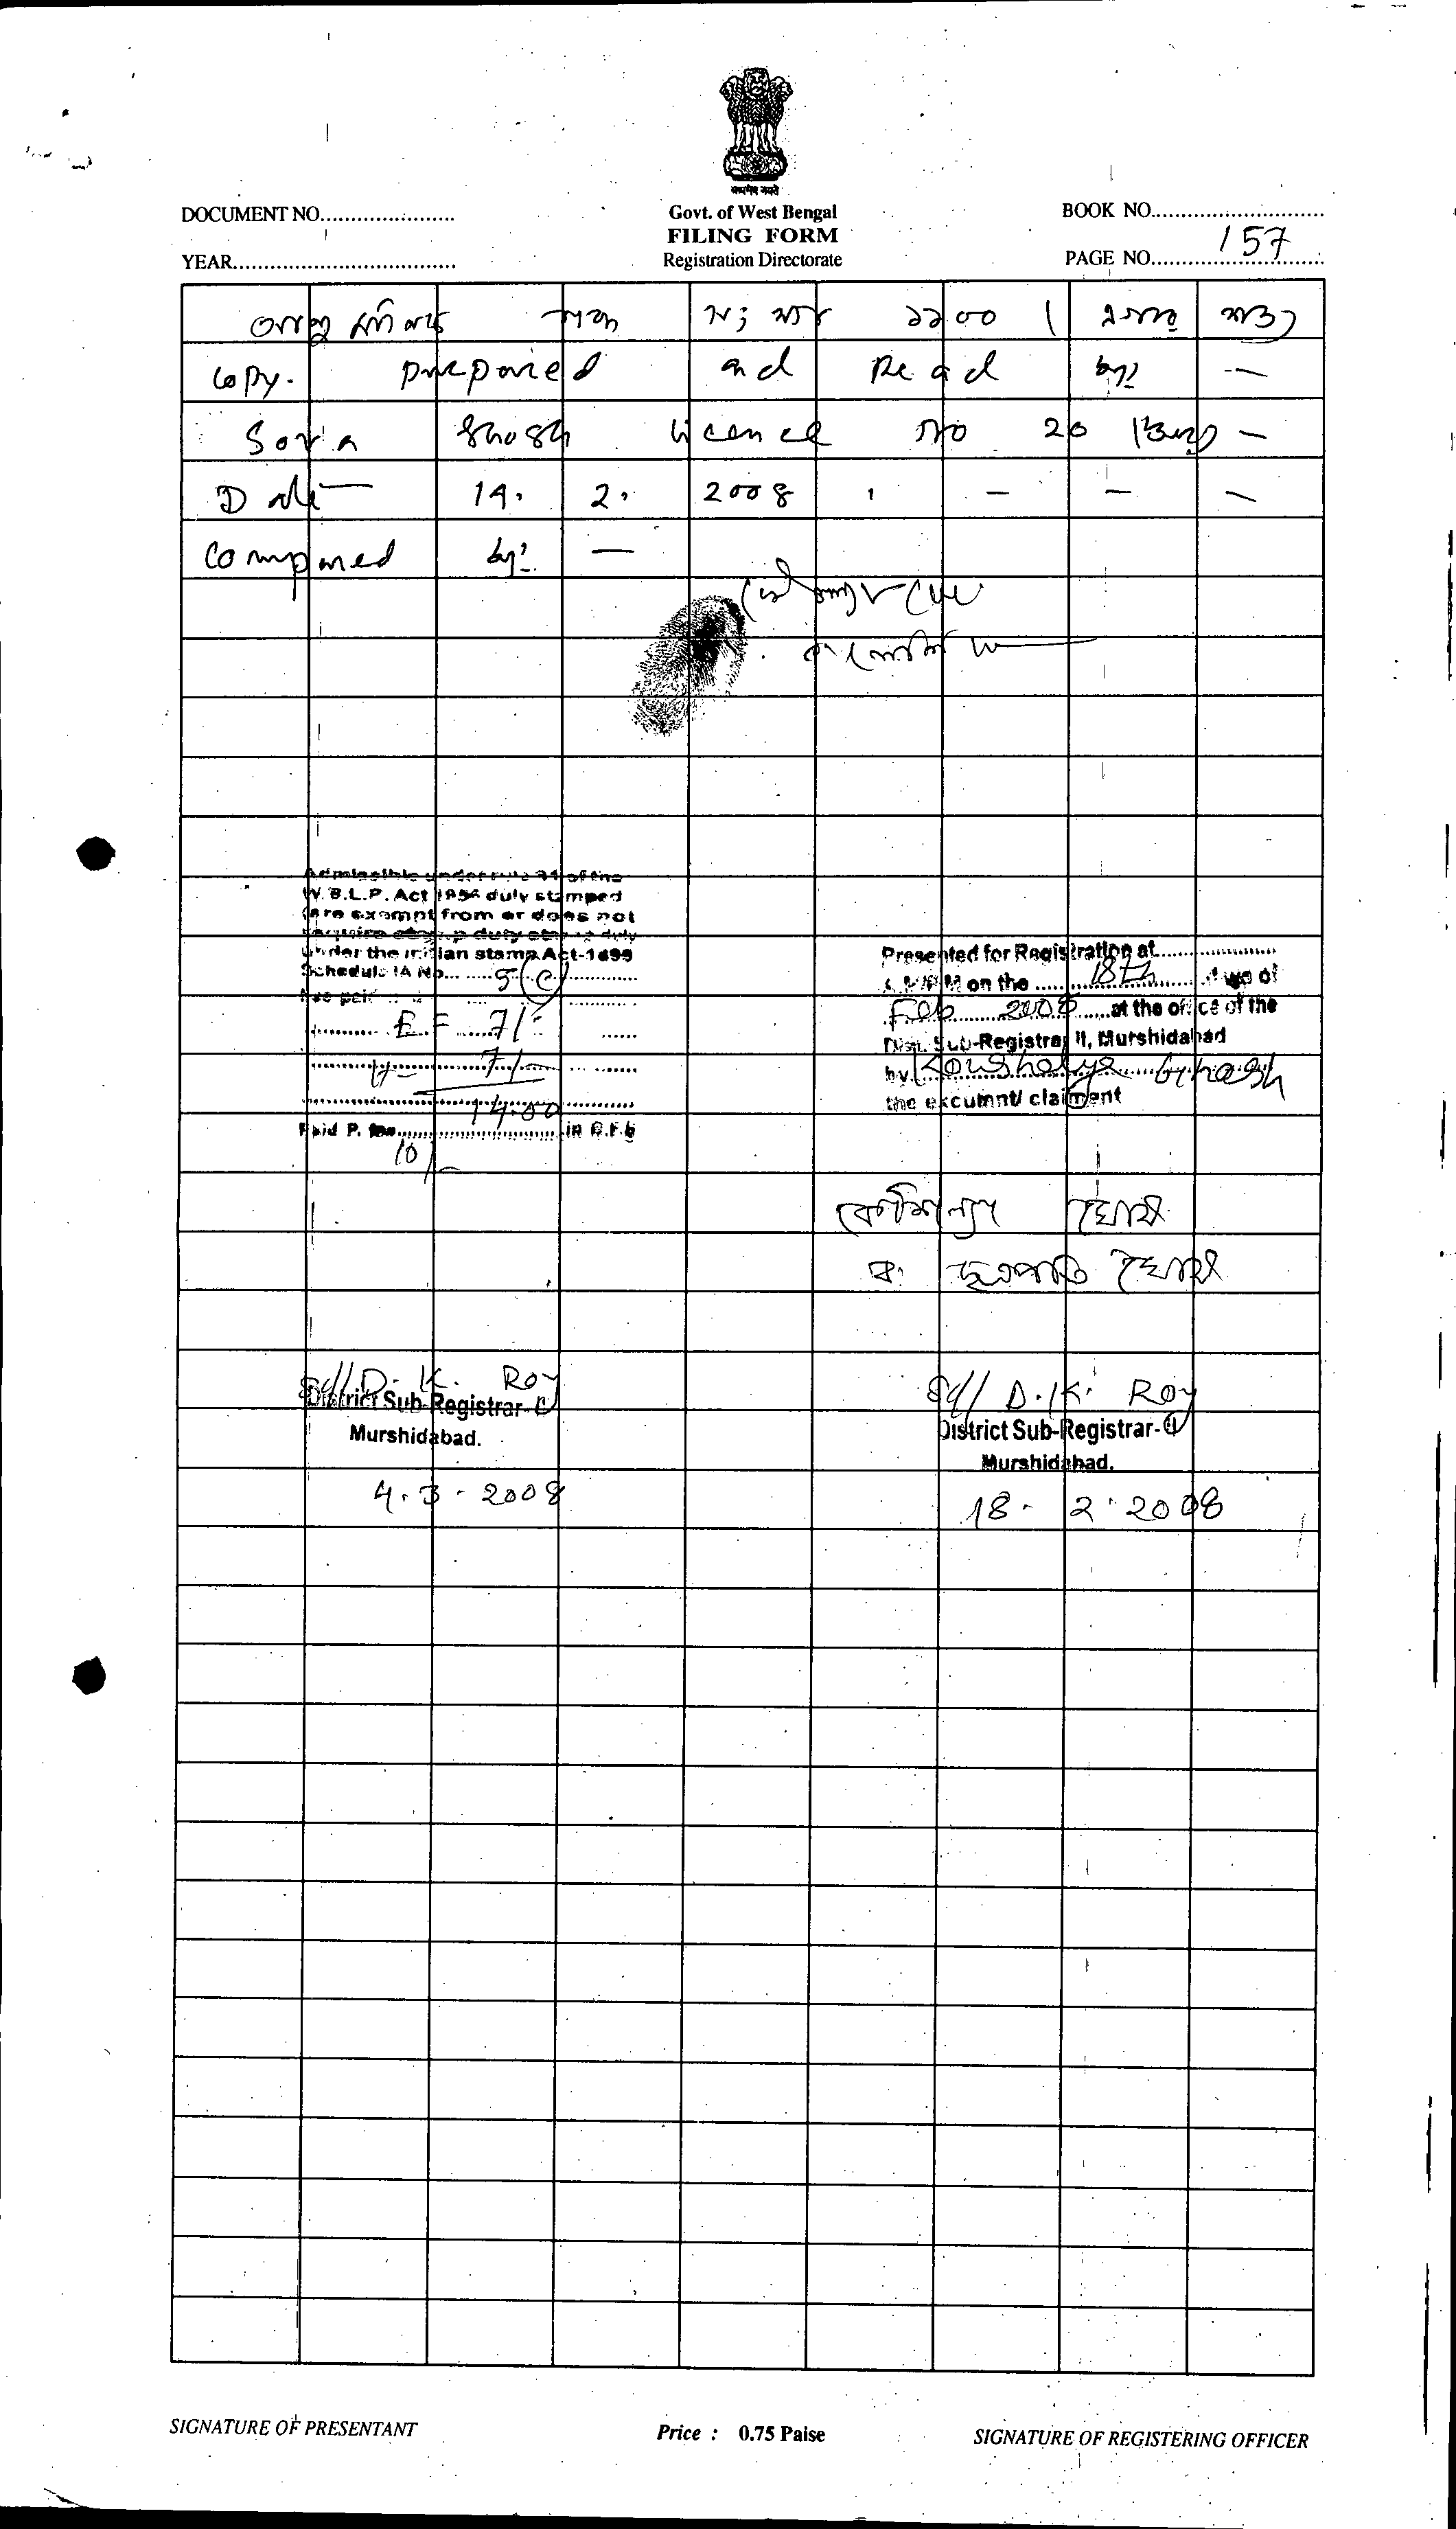 सत्यमेव जयते
DOCUMENT NO......................
Govt. of West Bengal
BOOK NO............................
FILING FORM
YEAR....................................
Registration Directorate
PAGE NO. 157
১১০০ ।
Copy. prepared and Read by: —
Sova Ghosh Licence No 20 —
Date — 14. 2. 2008
Compared by: —
Admissible under rule 21 of the
W.B.L.P. Act 1956 duly stamped
(are exempt from or does not
require stamp duty
under the indian stamp Act-1899
Schedule IA No... 5(c)
Fee paid
E = 7/-
H- 7/-
14.00
Paid P. fee 10/- in C.F.S
Presented for Registration at..............
A.M/P.M on the 18th day of
Feb 2008 at the office of the
Dist. Sub-Registrar II, Murshidabad
by Koushalya Ghosh
the excutnt/ claiment
কৌশল্যা ঘোষ
স্ব: ঘোষ
Sd/ D. K. Roy
District Sub-Registrar-II
Murshidabad.
4.3.2008
Sd/ D.K. Roy
District Sub-Registrar-II
Murshidabad.
18. 2. 2008
SIGNATURE OF PRESENTANT
Price : 0.75 Paise
SIGNATURE OF REGISTERING OFFICER